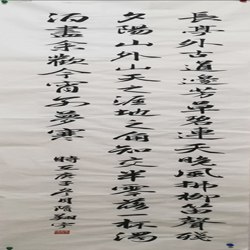 長亭外古道邊芳草碧連天晚風拂柳笛聲殘
夕陽山外山天之涯地之角知交半零落一杯濁
酒盡余歡今宵別夢寒
時在庚子